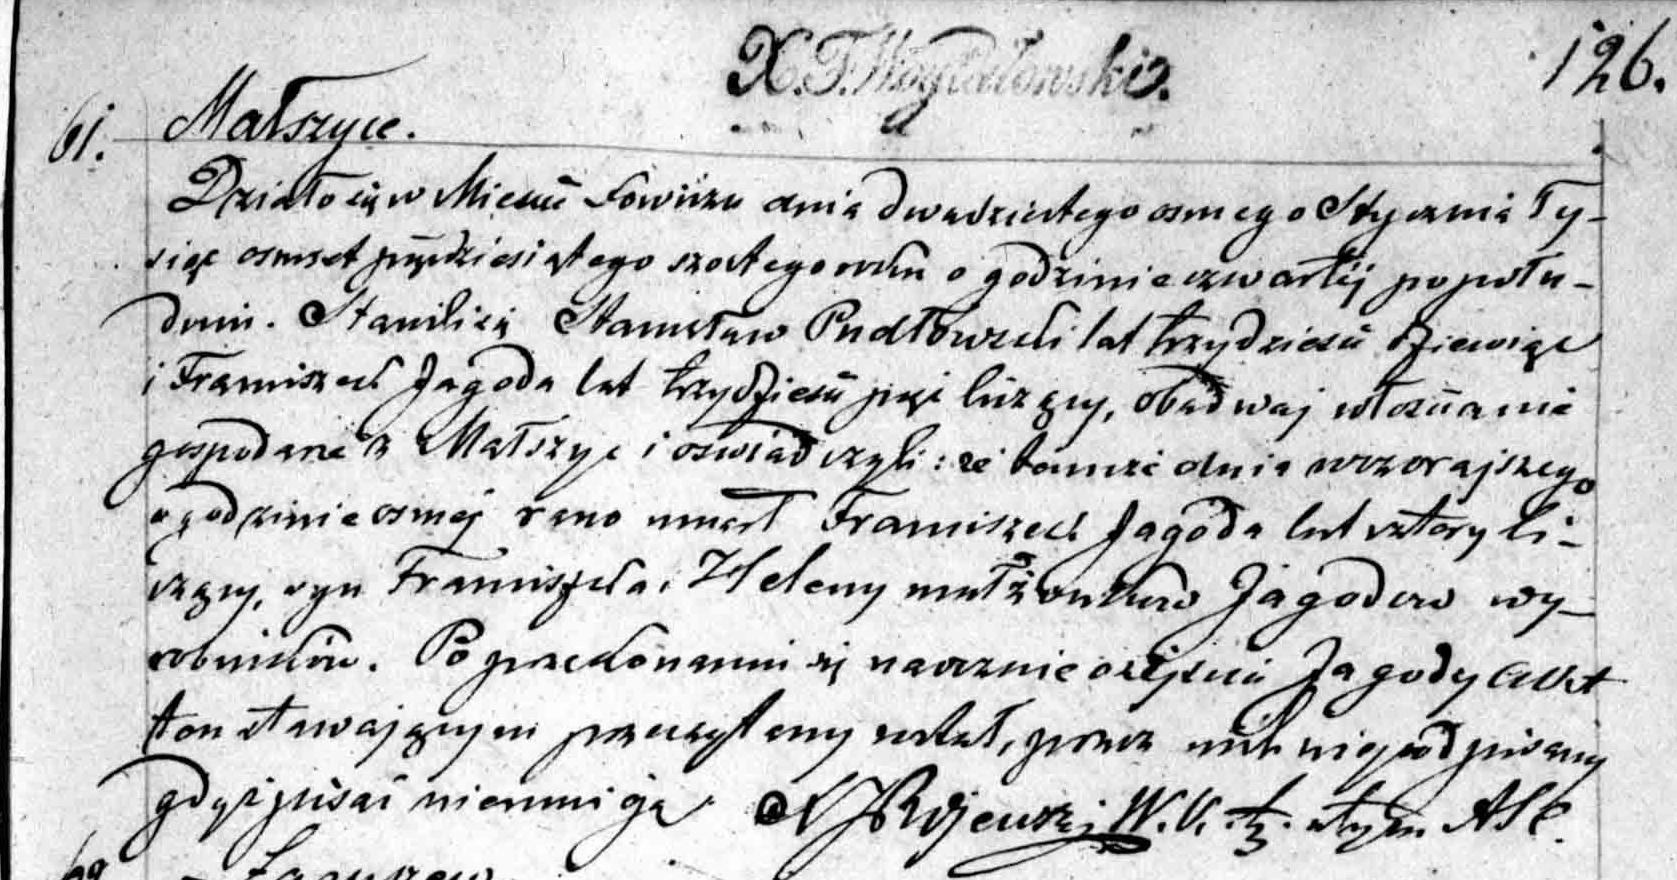 126.
61. Małszyce.
Działo się w Mieście Łowiczu dnia dwudziestego osmego Stycznia Ty-
siąc osmset pięćdziesiątego szostego roku o godzinie czwartej popołu-
dniu. Stawili się Stanisław Pudłowski lat trzydzieści dziewięć
i Franciszek Jagoda lat trzydzieści pięć liczący, obadwaj włościanie
gospodarze z Małszyc i oswiadczyli: że tamże dnia wczorajszego
o godzinie osmej rano umarł Franciszek Jagoda lat cztery li-
czący, syn Franciszka i Heleny małżonków Jagodów wy-
robników. Po przekonaniu się naocznie o zejściu Jagody Akt
ten stawającym przeczytany został, przez nich niepodpisany
gdyż pisać nieumieją.